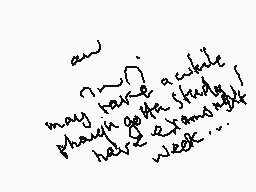 aw
may take a while
though gotta study!
have exams next
week...